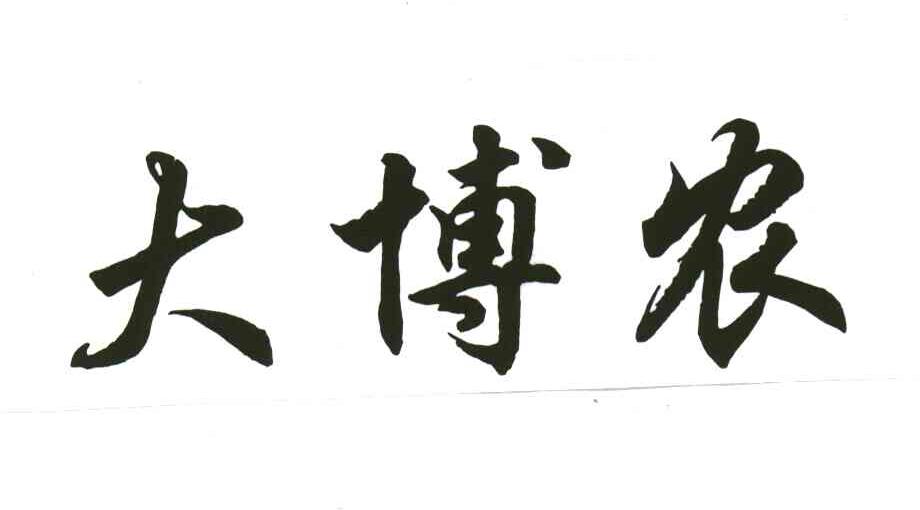 大博农